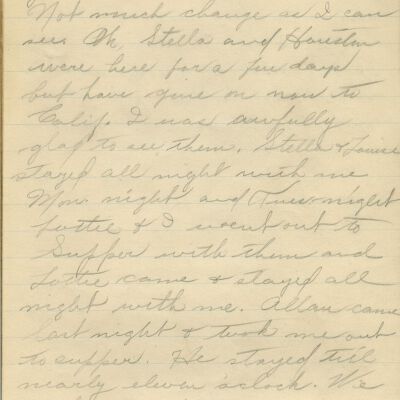 Not much change as I can
see. Oh, Stella and Houston
were here for a few days
but have gone on now to
Calif. I was awfully
glad to see them. Stella & Louise
stayed all night with me
Mon. night and Tues. night
Lottie & I went out to
Supper with them and
Lottie came & stayed all
night with me. Allan came
last night & took me out
to supper. He stayed till
nearly eleven o'clock. We